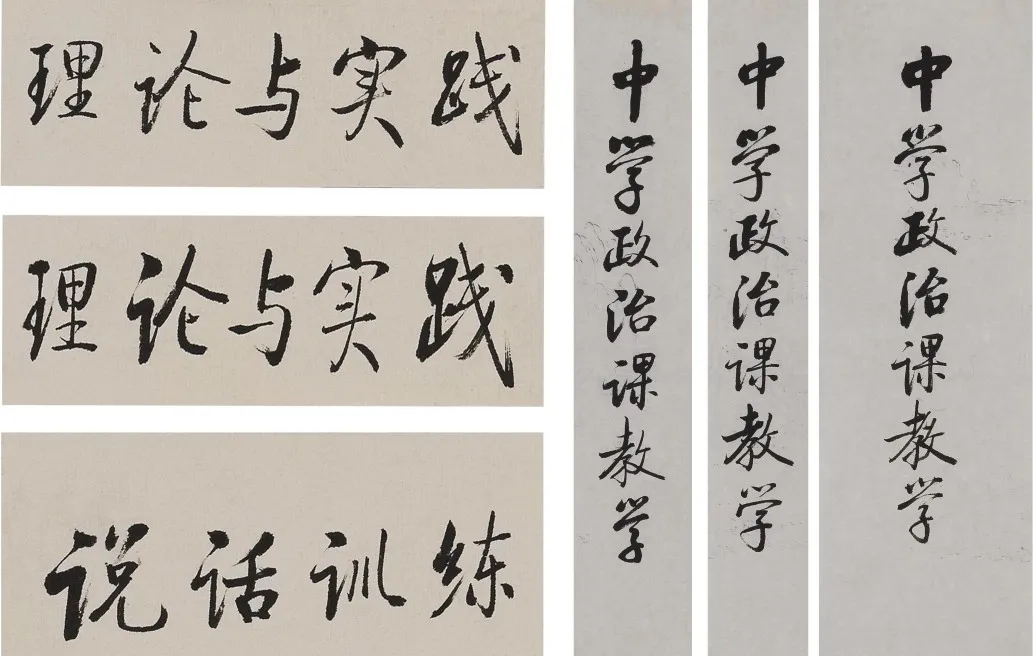 理论与实践
理论与实践
说话训练
中学政治课教学
中学政治课教学
中学政治课教学